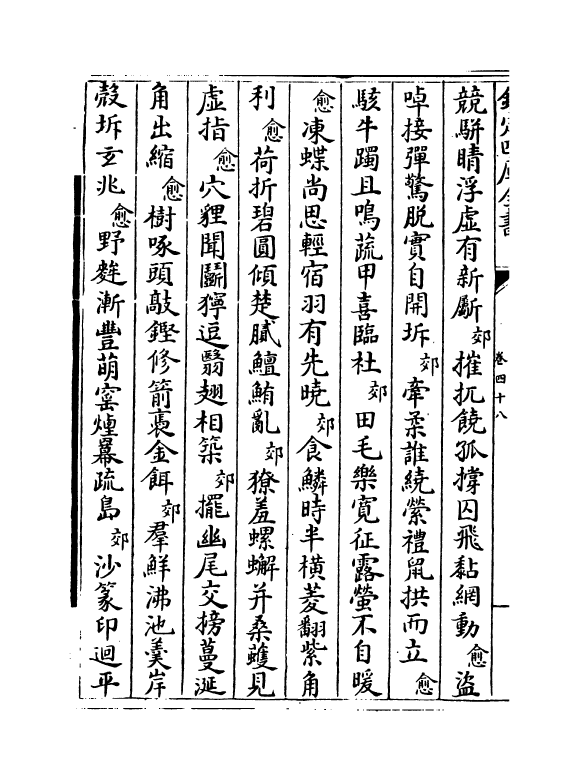 欽定四庫全書 卷四十八
競駢睛浮虛有新斸郊摧扤饒孤撐囚飛黏網動愈盜
啅接彈驚脫實自開坼郊牽柔誰繞縈禮鼠拱而立愈
駭牛躅且鳴蔬甲喜臨社郊田毛樂寬征露螢不自暖
愈凍蝶尚思輕宿羽有先曉郊食鱗時半橫菱翻紫角
利愈荷折碧圓傾楚膩鱣鮪亂郊獠羞螺蠏并桑蠖見
虛指愈穴貍聞鬭獰逗翳翅相築郊擺幽尾交搒蔓涎
角出縮愈樹啄頭敲鏗修箭裊金餌郊羣鮮沸池羹岸
殼坼玄兆愈野麰漸豐萌窑煙冪疏島郊沙篆印迴平